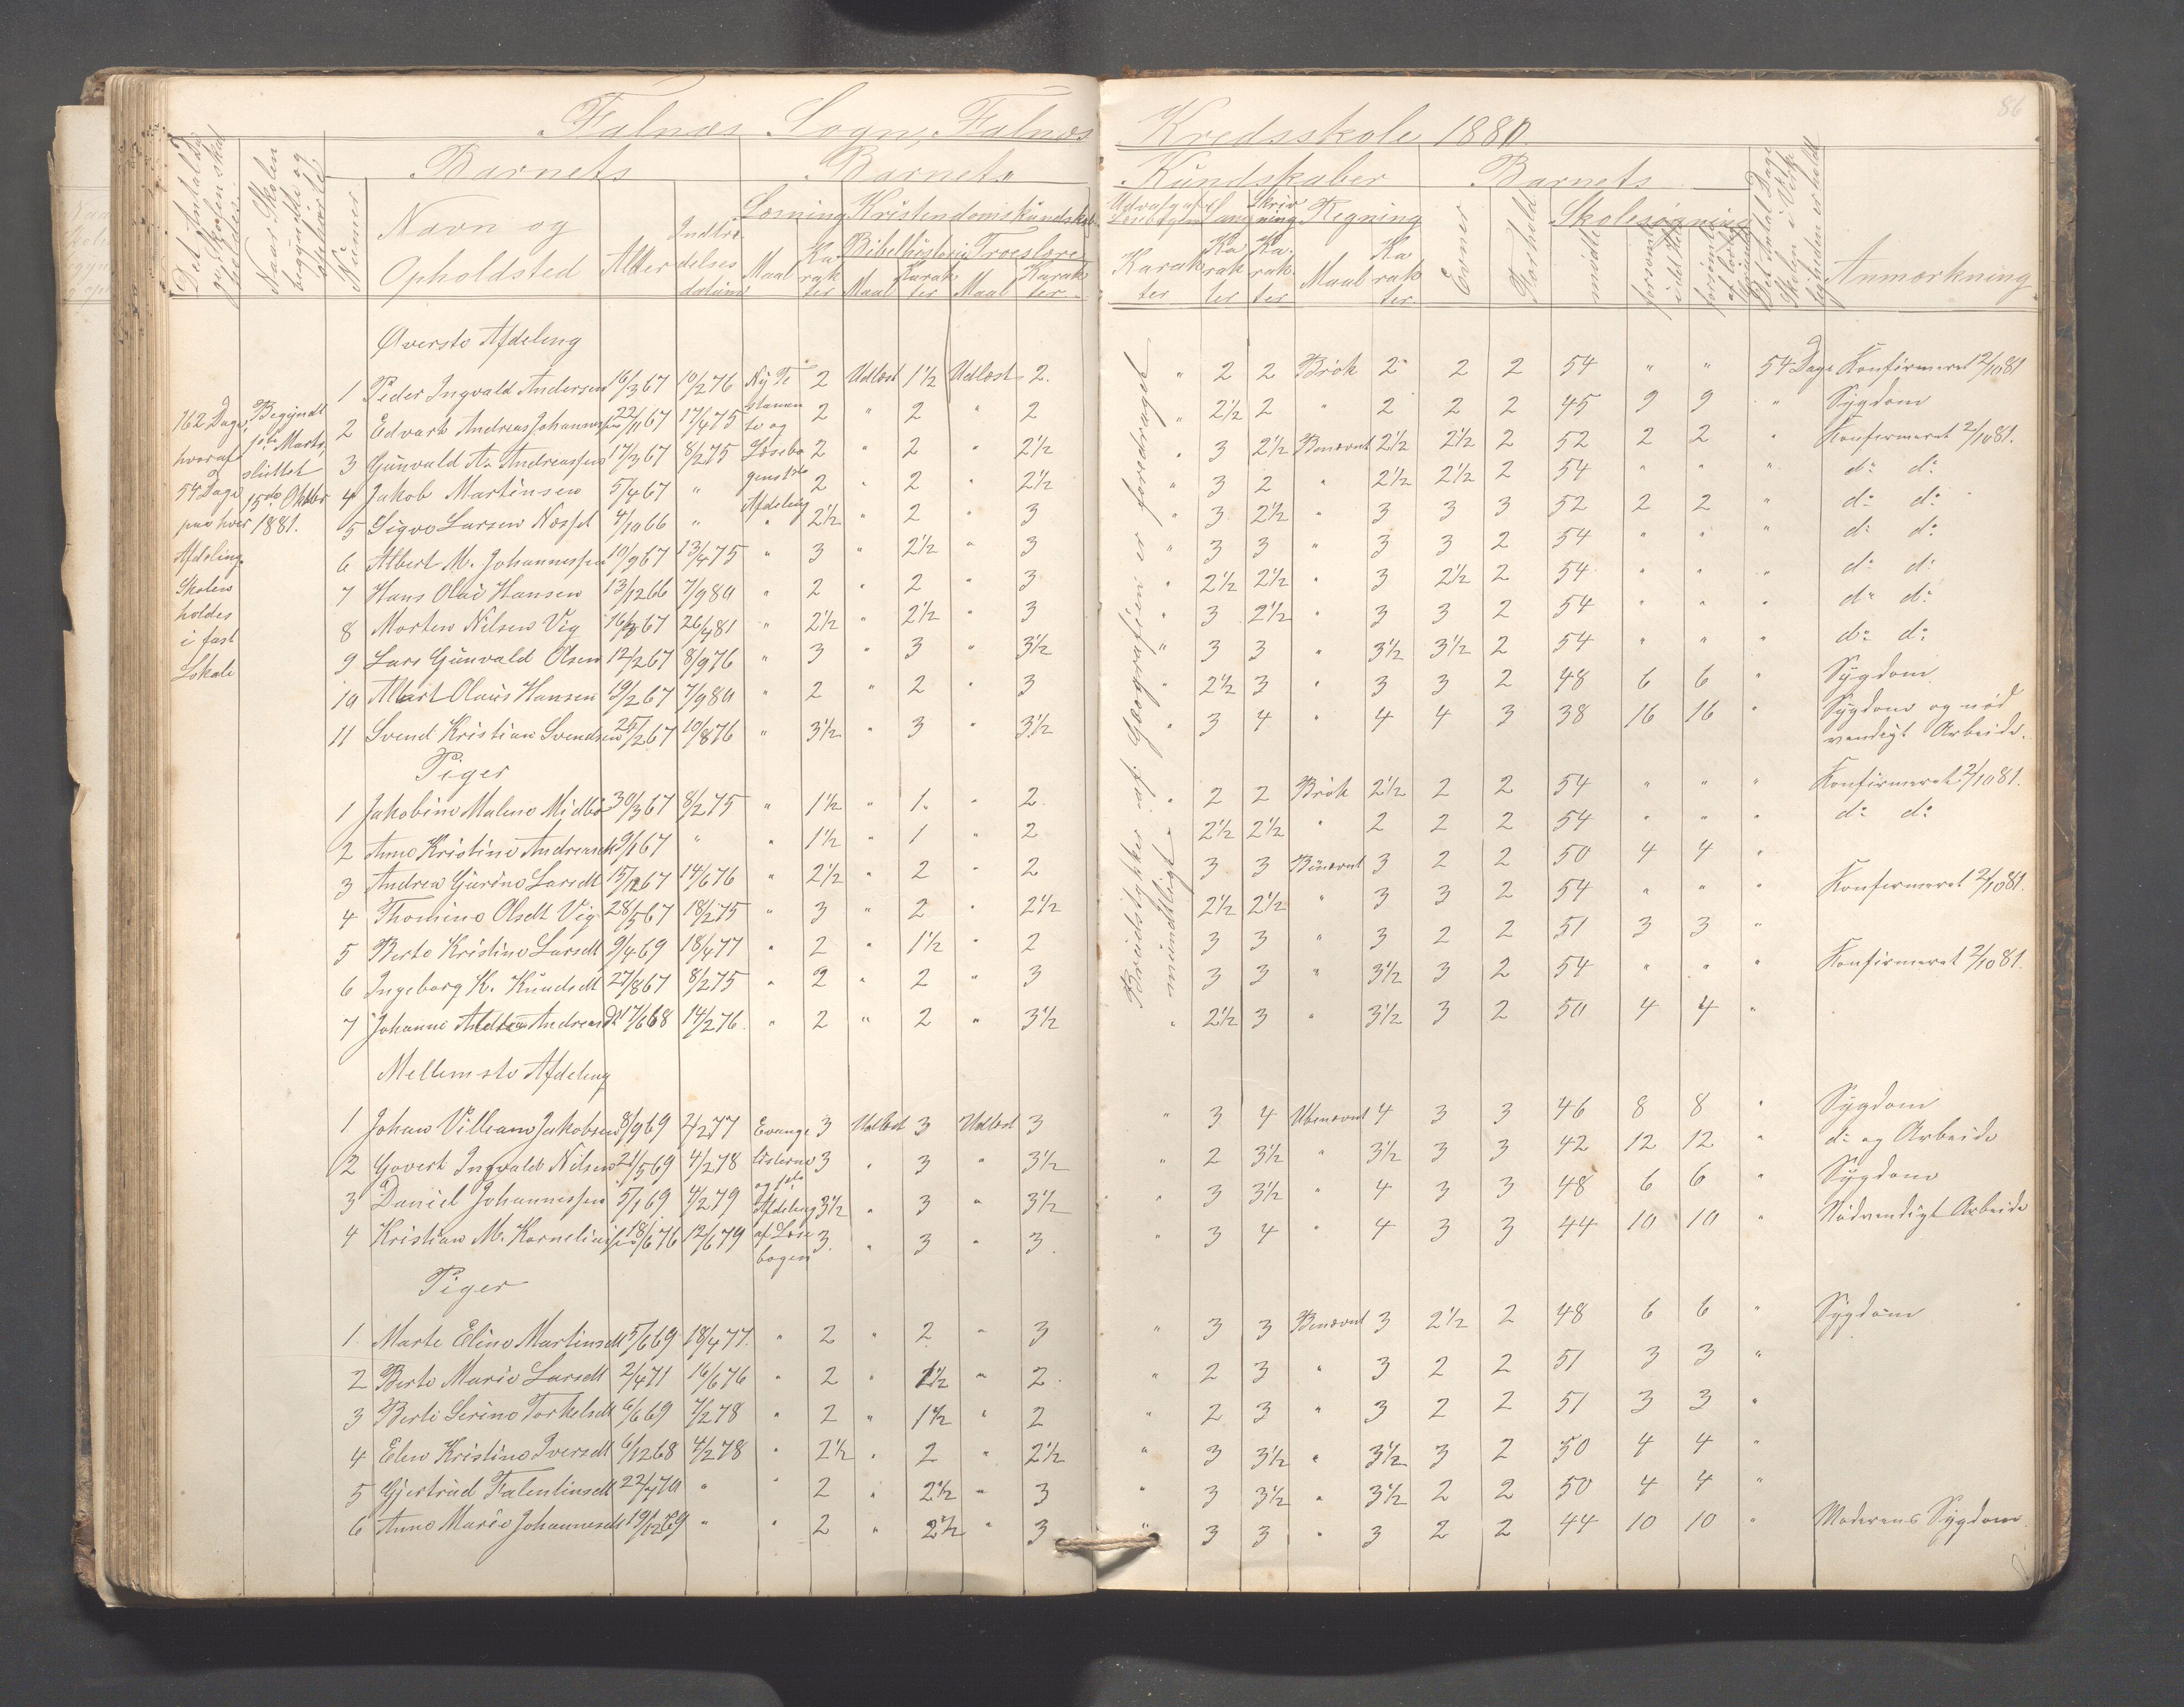 86
Falnæs Sogn, Falnæs Kredsskole 1880.
Det Antal Dage Skolen skal holdes.
Naar Skolen begyndte og
Numer
Barnets
Navn og Opholdsted
Alder
Indtrædelses datum
Barnets Kundskaber
Læsning Kristendomskundskab
Bibelhistorie Troeslære
Maal Karakter Maal Karakter Maal Karakter
Udvalg af Læsebogen Karakter
Sang Karakter
Skrivning Karakter
Regning Maal Karakter
Barnets
Evner Forhold
Skolesøgning
mødte forsømte i det Hele
Det Antal Dage Skolen i Virkeligheden er holdt
Anmærkning
162 Dage, hvoraf 54 Dage paa hver Afdeling. Skolen holdes i fast Lokale
Begyndt 1ste Marts, sluttet 15de Oktbr 1881.
Kredsstykker fra Læsebogen er gjennemgaaet mundtligt.
Øverste Afdeling
1 Peder Ingvald Andersen 16/3 67 10/2 76 Ny Te 2 Udlæst 1½ Udlæst 2. " 2 2 Brøk 2 2 2 54 " " 54 Dage Konfirmeret 2/10 81
2 Edvart Andreas Johannessen 22/11 67 17/4 75 stamente og 2 " 2 " 2 " 2½ 2 " 2 2 2 45 9 9 " Sygdom
3 Gunvald A. Andreassen 17/3 67 8/2 75 Læsebo 2 " 2 " 2½ " 3 2½ Benævnt 2½ 2½ 2 52 2 2 " Konfirmeret 2/10 81.
4 Jakob Martinsen 5/4 67 " gens 2 " 2 " 2½ " 3 2 " 2½ 2½ 2 54 " " " do do
5 Sigvo Larsen Næsset 4/10 66 " Afdeling 2½ " 2 " 3 " 3 2½ " 3 3 3 52 2 2 " do do
6 Albert M. Johannessen 10/9 67 13/4 75 " 3 " 2½ " 3 " 3 3 " 3 3 2 54 " " " do do
7 Hans Olai Hansen 13/12 66 7/9 80 " 2 " 2 " 3 " 2½ 2½ " 3 2½ 2 54 " " " do do
8 Morten Nilsen Vig 16/3 67 26/4 81 " 2½ " 2½ " 3 " 3 2½ " 3 3 2 54 " " " do do
9 Lars Gunvald Olsen 12/2 67 8/9 76 " 3 " 3 " 3½ " 3 3 " 3½ 3½ 2 54 " " " do do
10 Albert Olaus Hansen 19/2 67 7/9 80 " 2 " 2 " 3 " 2½ 3 " 3 3 2 48 6 6 " Sygdom
11 Svend Kristian Svendsen 25/2 67 10/8 76 " 3½ " 3 " 3½ " 3 4 " 4 4 3 38 16 16 " Sygdom og nødvendigt Arbeide.
Piger
1 Jakobine Malene Midbø 30/3 67 8/2 75 " 1½ " 1. " 2 " 2 2 Brøk 2½ 2 2 54 " " " Konfirmeret 2/10 81.
2 Anne Kristine Andreasdt 9/1 67 " " 1½ " 1 " 2 " 2½ 2½ " 2 2 2 54 " " " do do
3 Andrea Gurine Larsdt 15/12 67 14/6 76 " 2½ " 2 " 2 3 3 Benævnt 3 2 2 50 4 4 "
4 Thomine Olsdt Vig 28/5 67 18/2 75 " 3 " 2 " 2½ 2½ 2½ " 3 3 2 54 " " " Konfirmeret 2/10 81.
5 Berte Kristine Larsdt 9/4 69 18/4 77 " 2 " 1½ " 2 3 3 " 3 2 2 51 3 3 "
6 Ingeborg K. Knudsdt 27/8 67 8/2 75 " 2 " 2 " 3 3 3 " 3½ 3 2 54 " " " Konfirmeret 2/10 81.
7 Johanne Andreasdt 17/6 68 14/2 76. " 2 " 2 " 3½ " 2½ 3 " 3½ 3 2 50 4 4 "
Mellemste Afdeling
1 Johan Villiam Jakobsen 8/9 69 2/2 77 Evange 3 Udlæst 3 Udlæst 3 " 3 4 Ubenævnt 4 3 3 46 8 8 " Sygdom
2 Govert Ingvald Nilsen 21/5 69 4/2 78 listerne 3 " 3 " 3½ " 2 3½ " 3½ 3 3 42 12 12 " do og Arbeide
3 Daniel Johannessen 5/1 69 4/2 79 og 1ste Afdeling 3½ " 3 " 3½ " 3 3½ " 4 3 3 48 6 6 " Sygdom
4 Kristian M. Korneliussen 18/6 76 12/6 79 af Læsebogen 3. " 3 " 3 " 3 4 " 4 3 3 44 10 10 " Nødvendigt Arbeide
Piger
1. Marte Eline Martinsdt 5/6 69 18/4 77. " 2 " 2 " 3 " 3 3 Benævnt 3 2½ 2 48 6 6 " Sygdom
2 Berte Marie Larsdt 2/4 71 16/6 76 " 2 " 1½ " 2. " 2 3 " 3 2 2 51 3 3 "
3 Berte Serine Torkelsdt 6/6 69 7/2 78 " 2 " 1½ " 2 " 2 3 " 3 2 2 51 3 3 "
4 Elen Kristine Iversdt 6/12 68 4/2 78 " 2½ " 2 " 2½ " 3 3½ " 3½ 3 2 50 4 4 "
5 Gjertrud Falentinsdt 22/7 70 " " 2 " 2½ " 3 " 3 3½ " 3½ 2 2 50 4 4 "
6 Anne Marie Johannesdt 19/12 69 " " 2 " 2½ " 3 " 3 3 " 3 2 2 44 10 10 " Moderens Sygdom